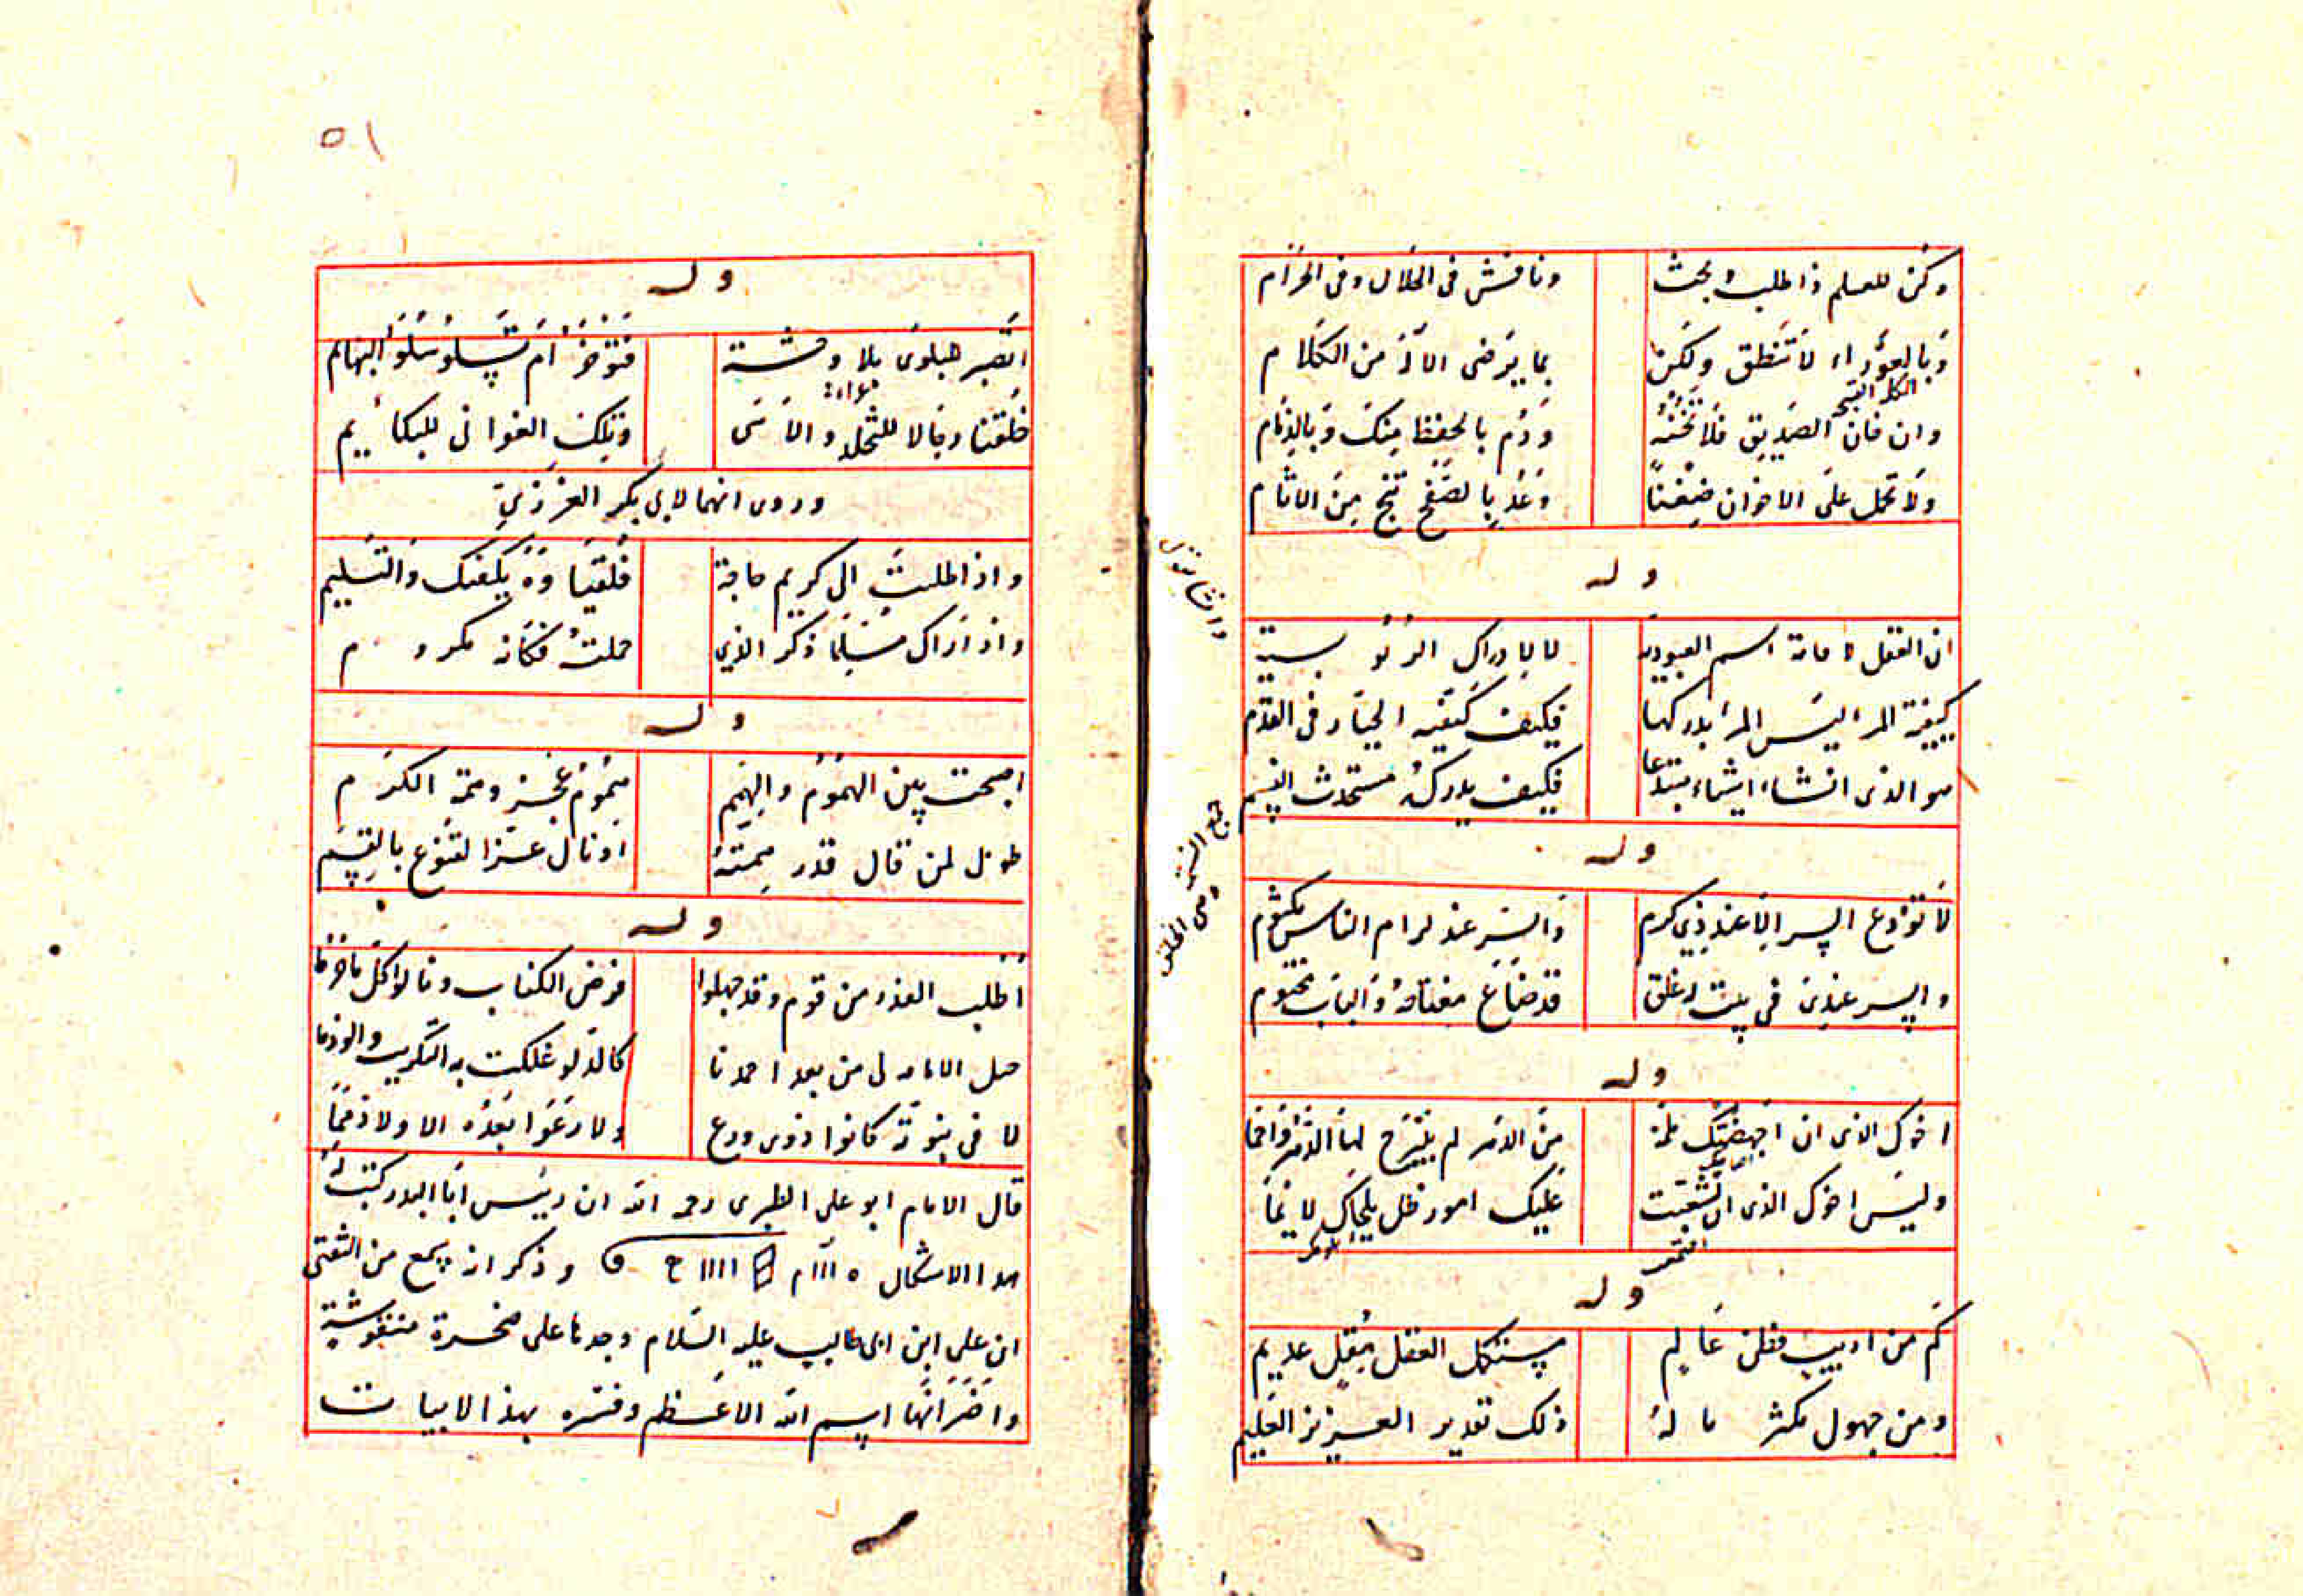 وكن للعلم ذا طلب وبحث ونافش فى الحلال وفى الحرام
وبالعوراء لا تنطق ولكن بما يرضى الاله من الكلام
الكلمة القبيحة
وان خان الصديق فلا تخنه ودم بالحفظ منك وبالذمام
ولا تحمل على الاخوان ضغنا وعد بالصفح تنج من الاثام
وله
ان العقل اسم العبودية لا بادراك
كيفية المرء ليس المرء يدركها فكيف كيفيه الجبار فى القدم
هو الذى انشاء اشياء مبتدعا فكيف يدركه مستحدث النسم
جمع النسمة وهى الخلق
وله
لا تودع السر الا عند ذي كرم والسر عند كرام الناس مكتوم
والسر عندى فى بيت له غلق قد ضاع مفتاحه والباب مختوم
وله
اخوك الذى ان اجهضتك ملمة من الدهر لم يبرح لها الدهر واجما
وليس اخوك الذى ان تشعبت عليك امور ظل يلحاك لائما
وله
كم من اديب فطن عالم مستكمل العقل مقل عديم
ومن جهول مكثر ماله ذلك تقدير العزيز العليم
٥١
وله
اتصبر للبلوى فتوجر ام تسلو سلو البهائم
خلقنا رجالا للتجلد والاسى وتلك الغوانى للبكا يم
وروى انهما لابى بكر العرزمى
واذا طلبت الى كريم حاجة فلقياوه يكفيك والتسليم
واذا راك مسلما ذكر الذي حملته فكانه مكروم
وله
اصبحت بين الهموم والهمم هموم عجز وهمة الكرم
طوبى لمن نال قدر همته او نال عز القنوع بالقسم
وله
اطلب العذر من قوم وقد جهلوا فرض الكتاب ونالوا كل ما حرما
حبل الامامة لى من بعد احمدنا كالدلو علقت به التكريب والوذما
لا فى نبوته كانوا ذوى ورع ولا رعوا بعده الا ولا ذمما
قال الامام ابو على الطبرى رحمه الله ان رييس ابا البدر كتب له
هذا الاشكال وذكر انه سمع من الثقتى
ان على ابن ابى طالب عليه السلام وجدها على صخرة منقوشة
واخبر انها اسم الله الاعظم وفسره بهذا الابيات